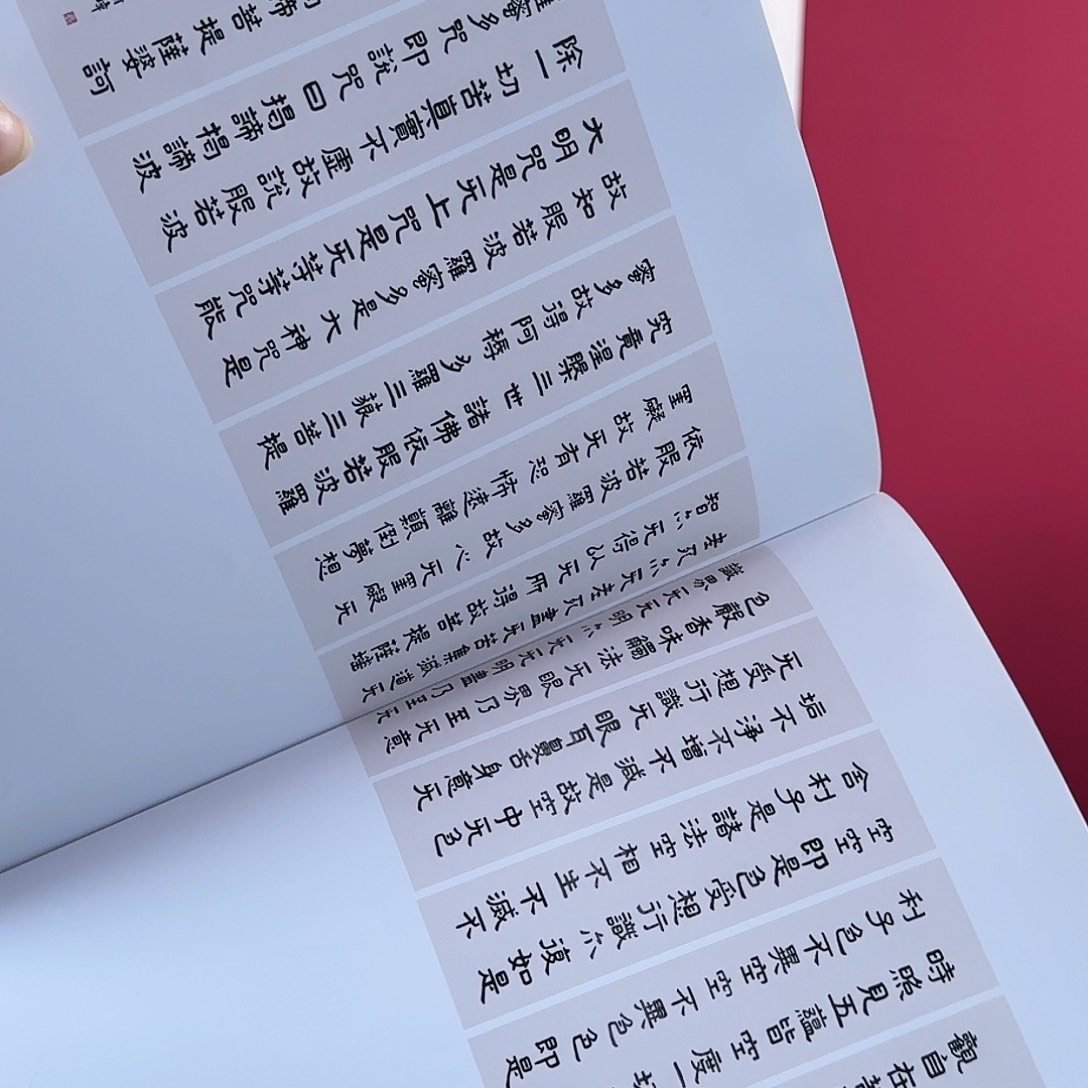 觀自在菩
時照見五蘊皆空度一切
利子色不異空空不異色色即是
空空即是色受想行識亦復如是
舍利子是諸法空相不生不滅不
垢不淨不增不減是故空中无色
无受想行識无眼耳鼻舌身意无
色聲香味觸法无眼界乃至无意
識界无无明亦无无明盡乃至无
老死亦无老死盡无苦集滅道无
智亦无得以无所得故菩提薩埵
依般若波羅蜜多故心无罣礙无
罣礙故无有恐怖遠離顛倒夢想
究竟涅槃三世諸佛依般若波羅
蜜多故得阿耨多羅三藐三菩提
故知般若波羅蜜多是大神咒是
大明咒是无上咒是无等等咒能
除一切苦真實不虛故說般若波
羅蜜多咒即說咒曰揭諦揭諦波
諦菩提薩婆訶